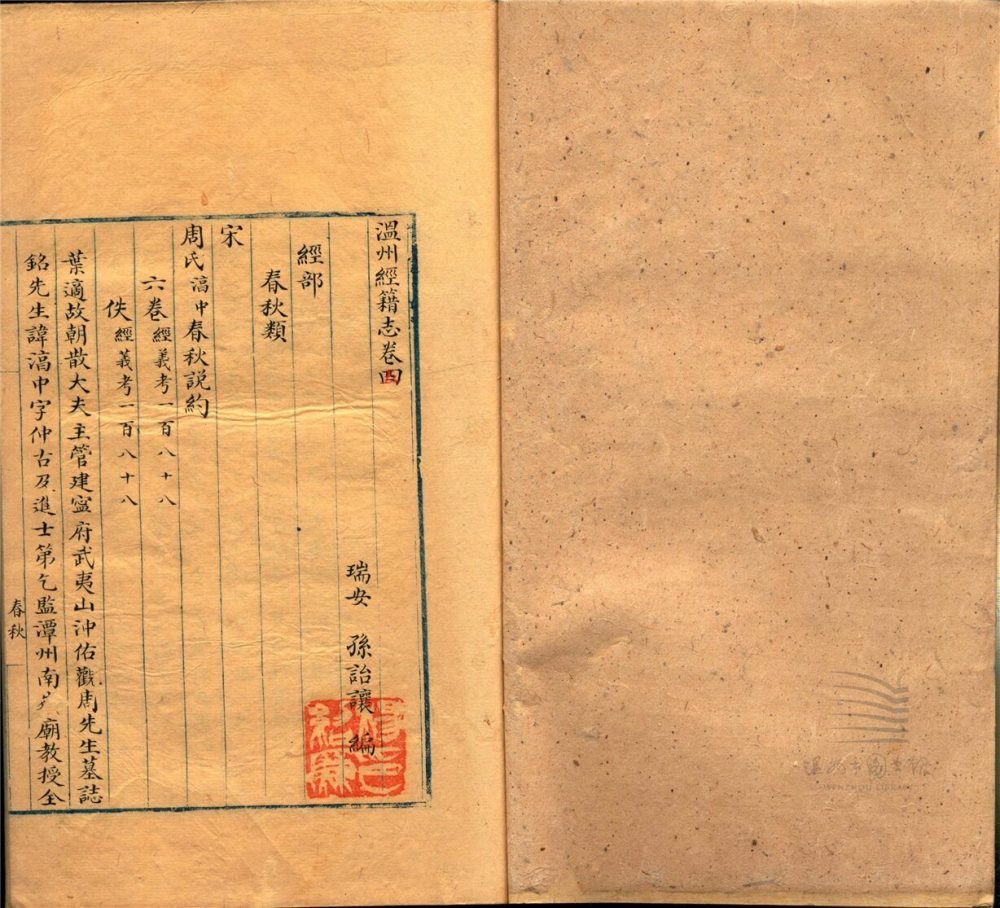 溫州經籍志卷四
瑞安 孫詒讓 編
經部
春秋類
宋
周氏湻中春秋説約
六卷 經義考一百八十八
佚 經義考一百八十八
葉適故朝散大夫主管建寧府武夷山沖佑觀周先生墓誌
銘先生諱湻中字仲古及進士第乞監潭州南岳廟教授全
春秋
温州市图书馆
WENZHOU LIBRARY